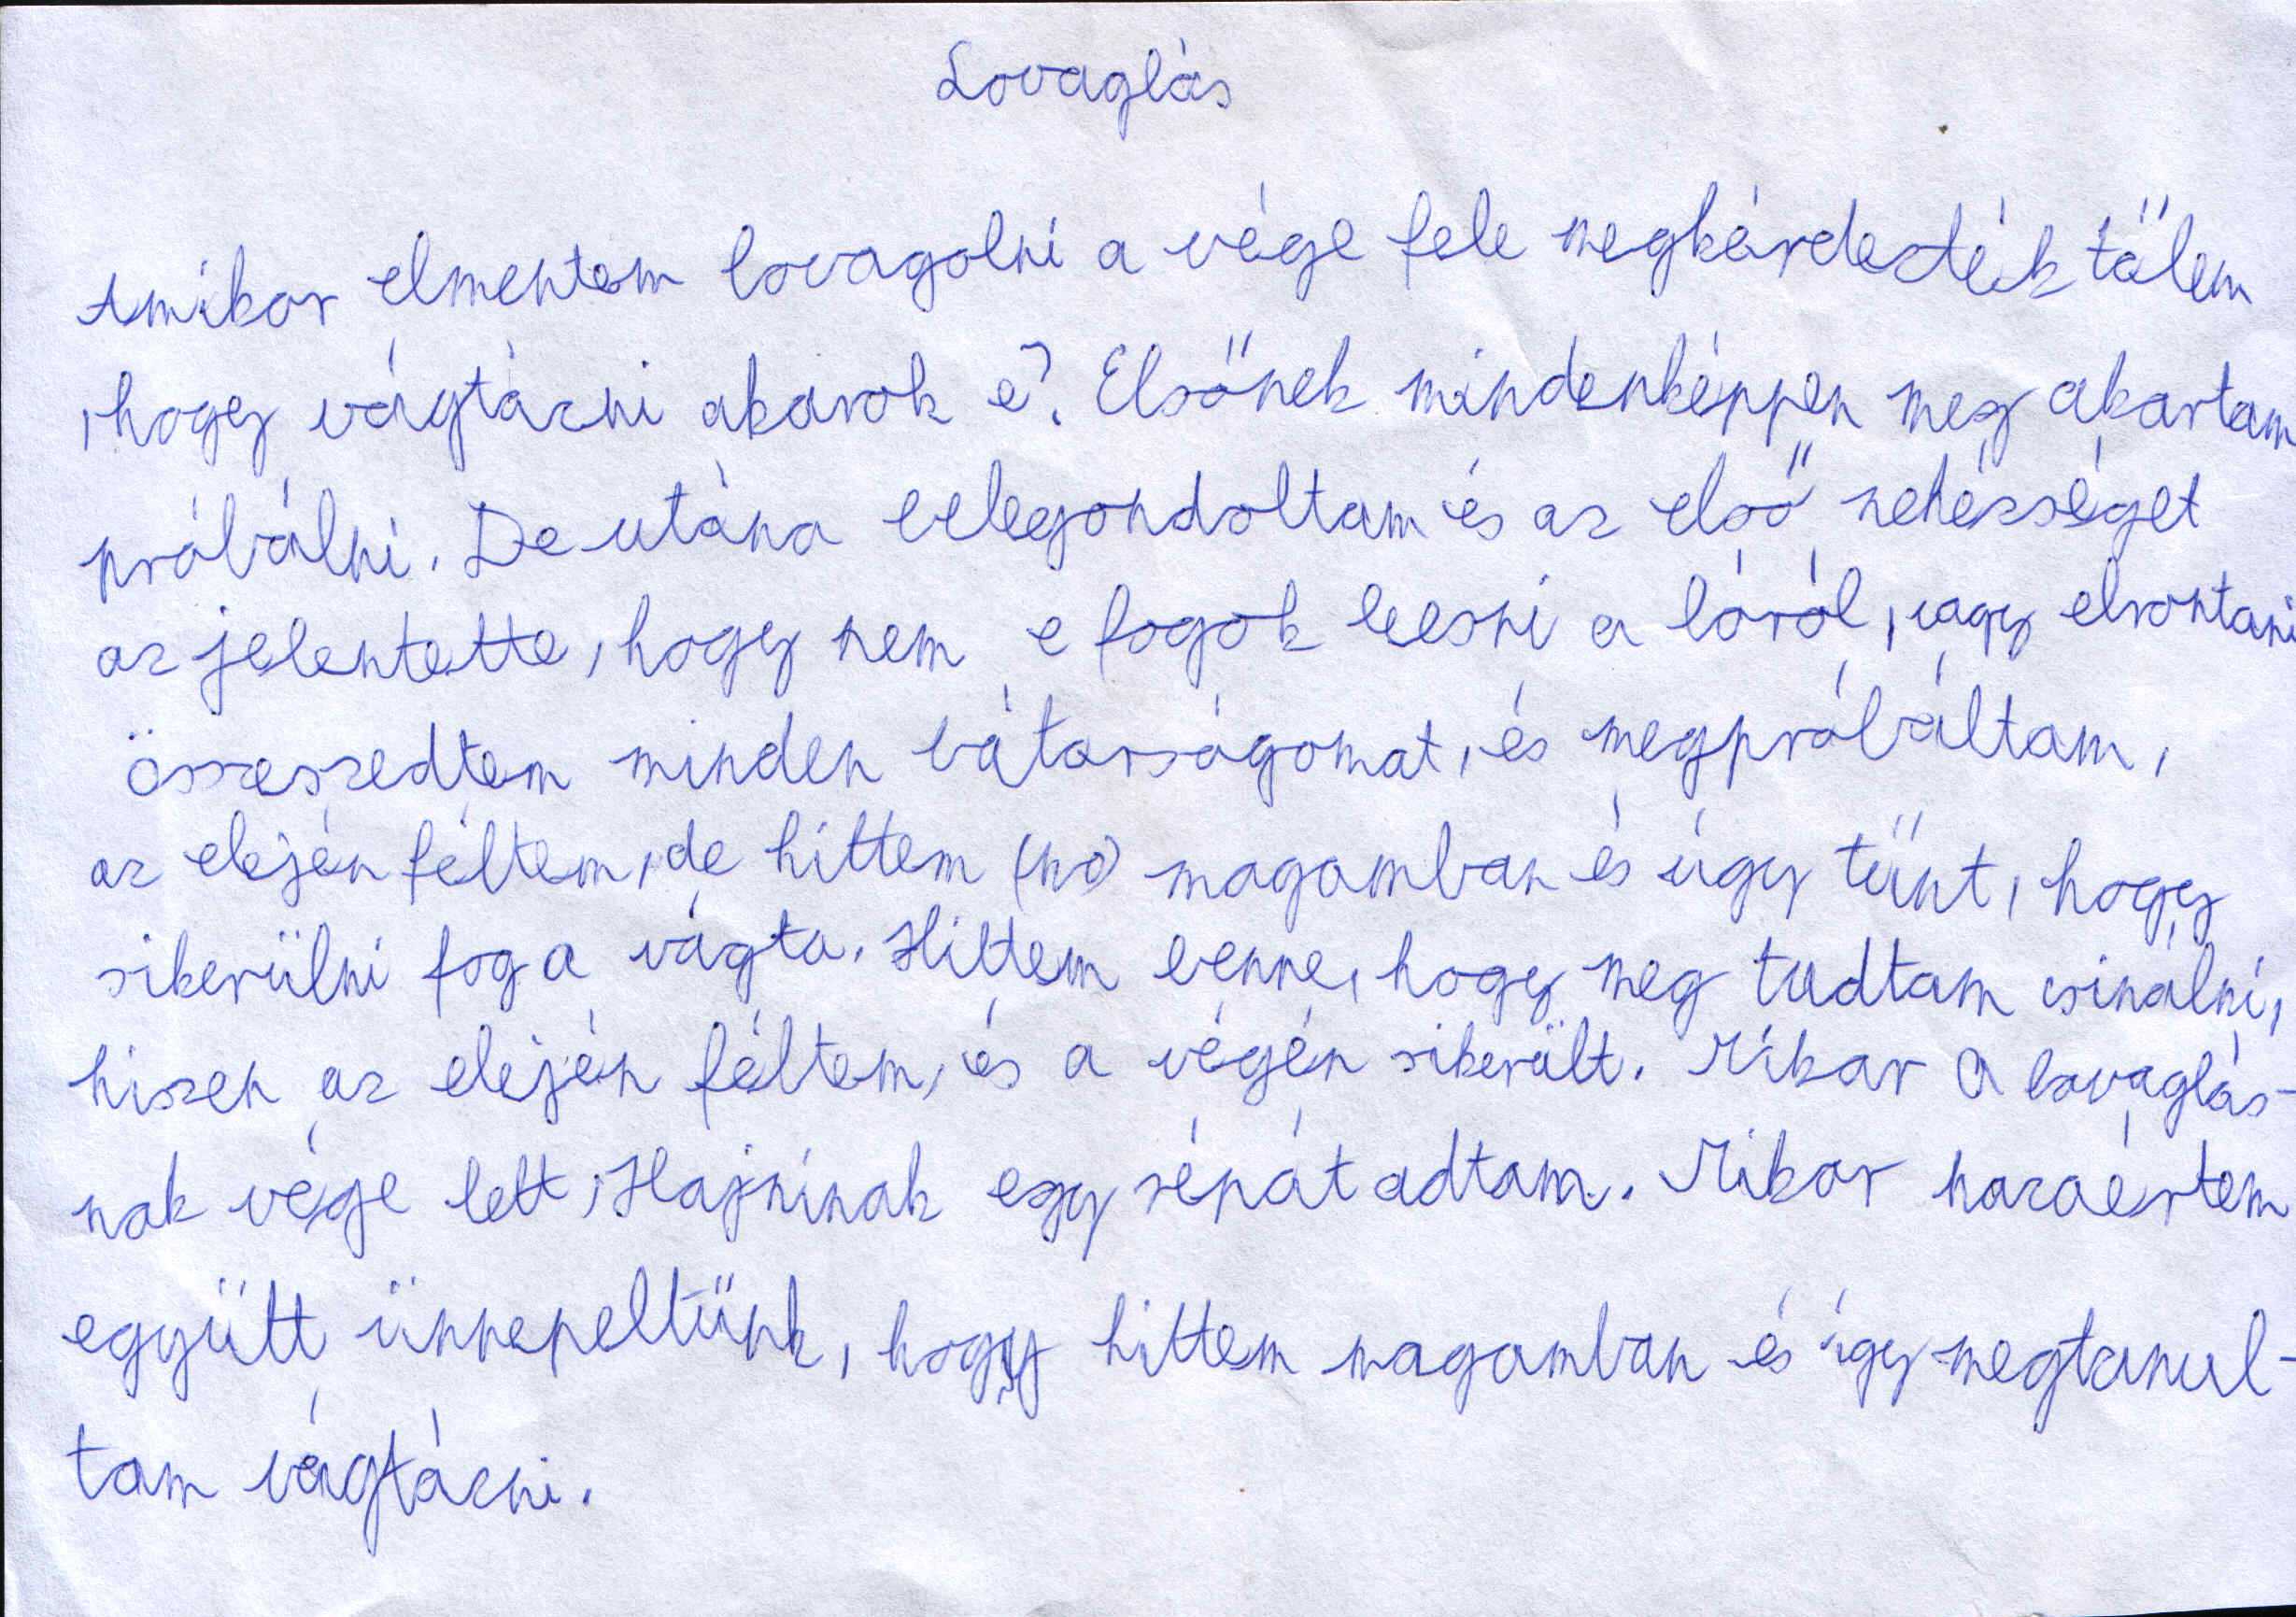 Lovaglás
Amikor elmentem lovagolni a vége fele megkérdezték tőlem
, hogy vágtázni akarok e? Elsőnek mindenképpen meg akartam
próbálni. De utána belegondoltam és az első nehézséget
az jelentette, hogy nem e fogok leesni a lóról, vagy elrontani
összeszedtem minden bátorságomat, és megpróbáltam,
az elején féltem, de hittem (no) magamban és úgy tűnt, hogy
sikerülni fog a vágta. Hittem benne, hogy meg tudtam csinálni,
hiszen az elején féltem, és a végén sikerült. Mikor a lovaglás-
nak vége lett, Hajninak egy répát adtam. Mikor hazaértem
együtt ünnepeltünk, hogy hittem magamban és így megtanul-
tam vágtázni.